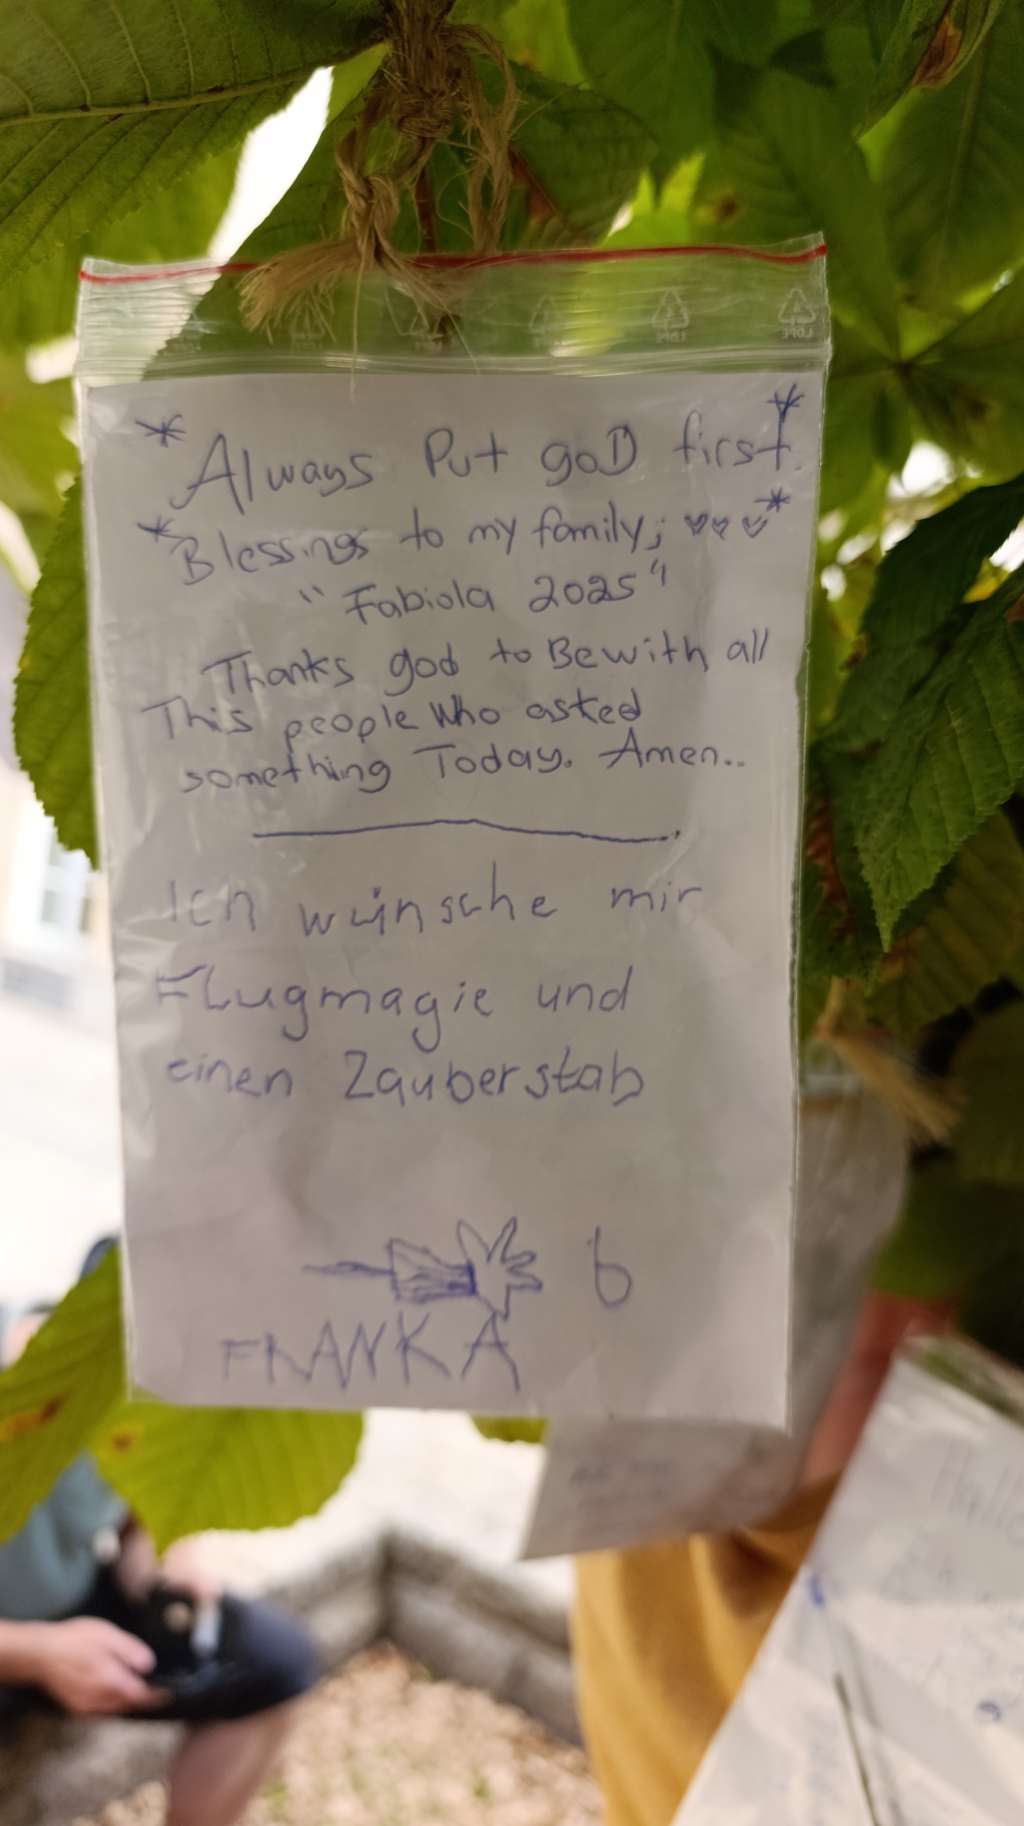 * Always Put goD first. *
* Blessings to my family; ♡♡♡ *
"Fabiola 2025"
Thanks god to Be with all
This people Who asked
something Today. Amen..
Ich wünsche mir
Flugmagie und
einen Zauberstab
6
FRANKA
Hallo